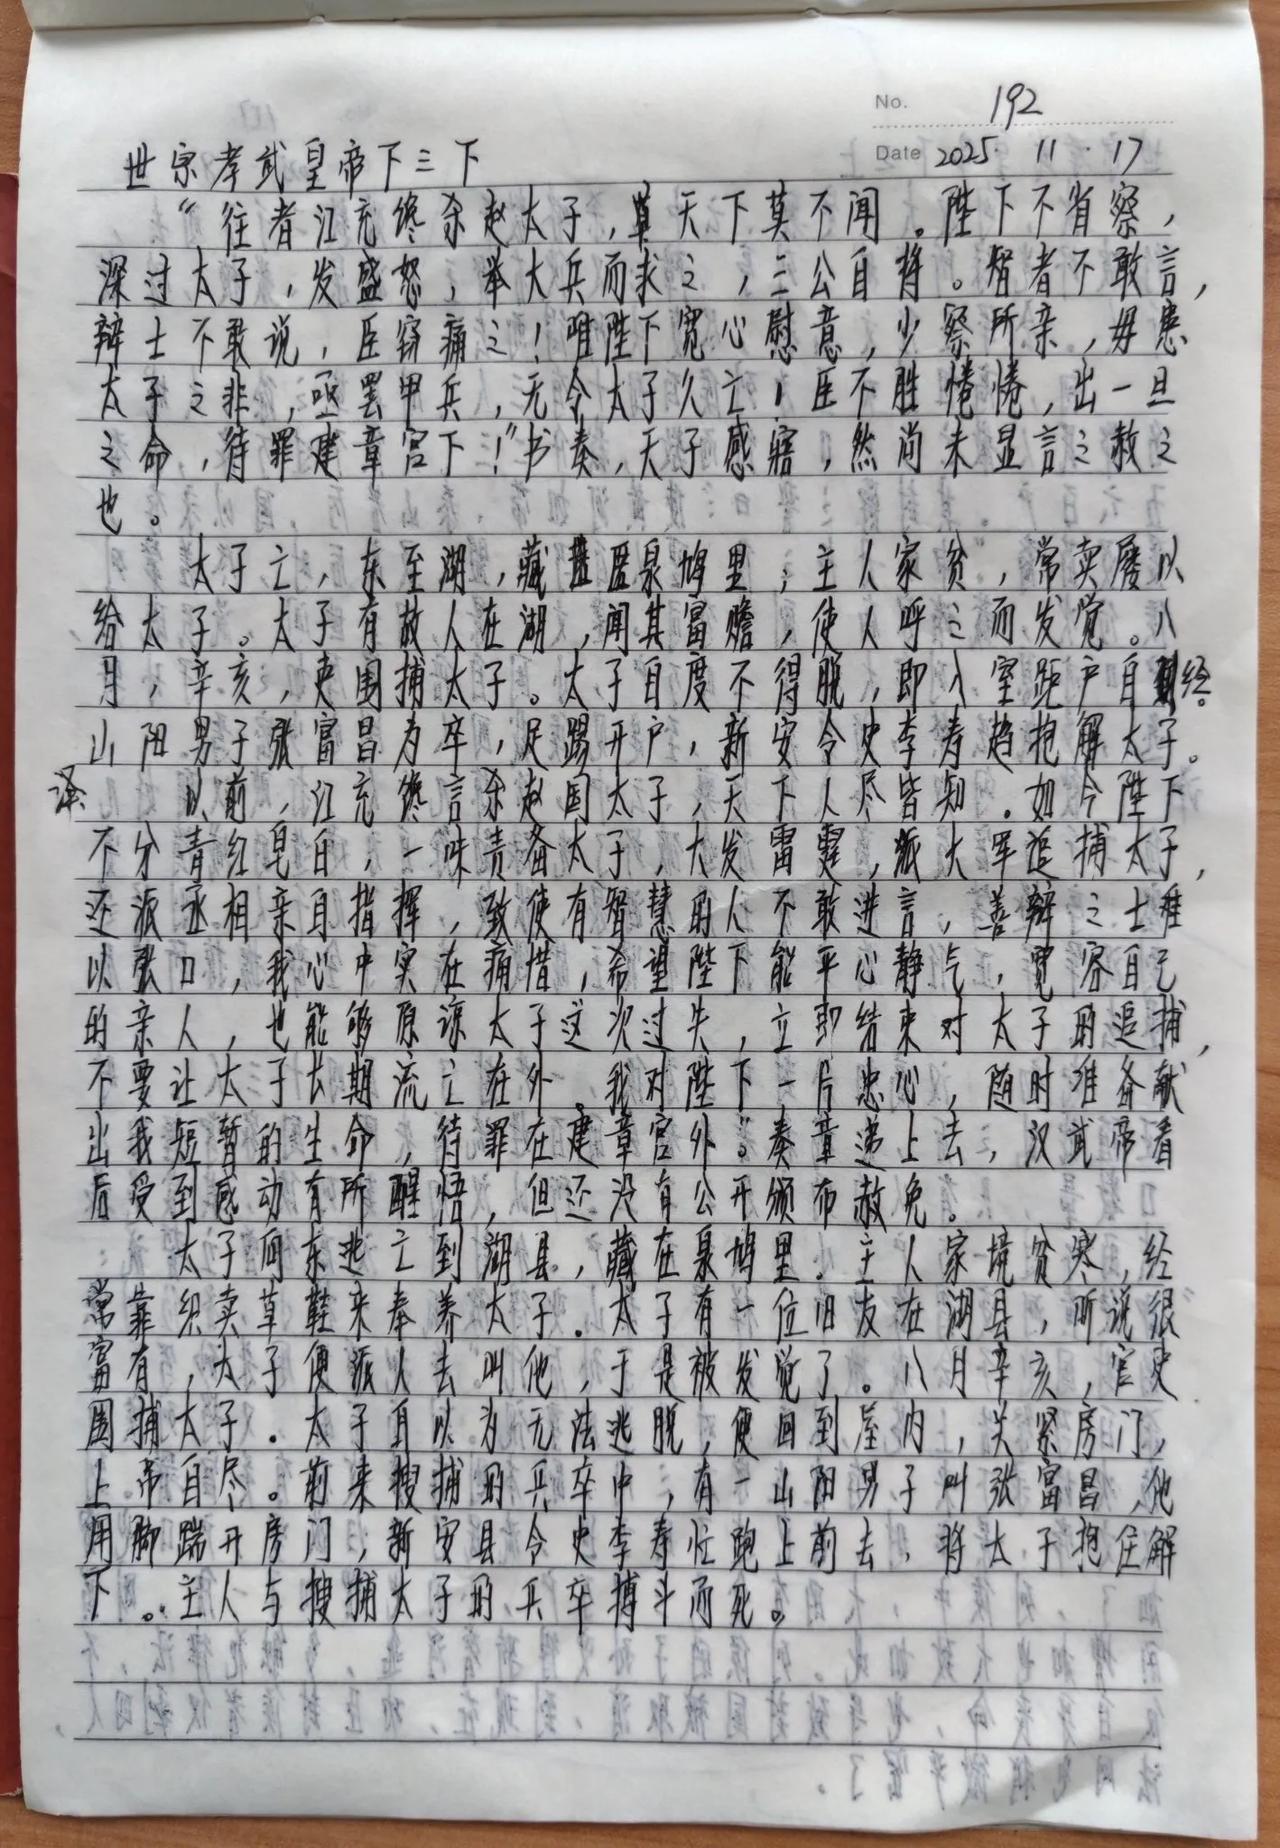 No. 192
世宗孝武皇帝下三下 Date 2025. 11. 17
“往者江充终杀赵太子，天下莫不闻。陛下不省察，
深过太子，发盛怒，举大兵而求之，三公自将。智者不敢言，
辩士不敢说，臣窃痛之！唯陛下宽心慰意，少察所亲，毋患
太子之非，亟罢甲兵，无令太子久亡！臣不胜惓惓，出一旦
之命，待罪建章宫下！”书奏，天子感寤，然尚未显言之赦之
也。
太子亡，东至湖，藏匿泉鸠里；主人家贫，常卖屦以
给太子。太子有故人在湖，闻其富赡，使人呼之而发觉。八
月，辛亥，吏围捕太子。太子自度不得脱，即入室距户自经。
山阳男子张富昌为卒，足踢开户，新安令史李寿趋抱解太子。
译 以前，江充终言杀赵国太子，天下人尽皆知。如今陛下
不分青红皂白，一味责备太子，大发雷霆，派大军追捕太子，
还派丞相亲自指挥，致使有智慧的人不敢进言，善辩之士难
以张口，我心中实在痛惜，希望陛下能平心静气，宽容自己
的亲人，也能够原谅太子这次过失，立即结束对太子的追捕，
不要让太子长期流亡在外。我对陛下一片忠心，随时准备献
出我短暂的生命，待罪在建章宫外。”奏章递上去，汉武帝看
后受到感动有所醒悟，但还没有公开颁布赦免。
太子向东逃亡到湖县，藏在泉鸠里。主人家境贫寒，经
常靠织卖草鞋来奉养太子。太子有一位旧友在湖县，听说很
富有，太子便派人去叫他，于是被发觉了。八月辛亥，官吏
围捕太子。太子自以为无法逃脱，便回到屋内，关紧房门，
上帝自尽。前来搜捕的兵卒中，有一山阳男子叫张富昌，他
用脚踹开房门，新安县令史李寿忙跑上前去，将太子抱住解
下。主人与搜捕太子的兵卒搏斗而死。